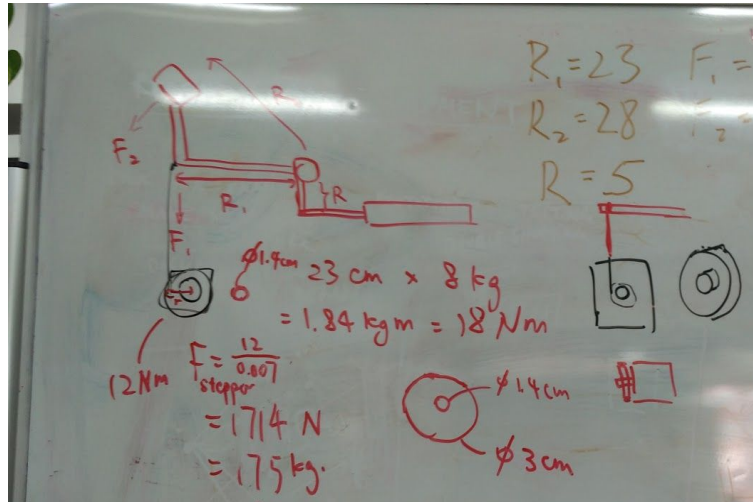 R₁=23 F₁=
R₂=28 F₂=
R=5
F₂
R₁
R
F₁
φ1.4cm
23 cm × 8 kg
= 1.84 kgm = 18 Nm
12Nm
F = 12/0.007
stepper
= 1714 N
= 175 kg.
φ1.4cm
φ3cm